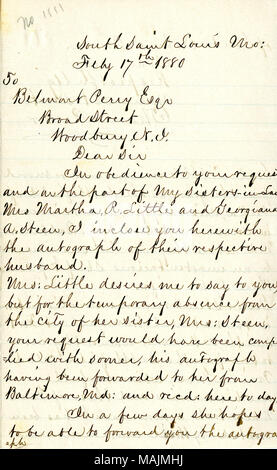 No 1111
South Saint Louis Mo:
Feby 17th 1880
To
Belmont Perry Esqr
Broad Street
Woodbury N. J.
Dear Sir
In obedience to your reques
and on the part of My Sisters-in-Law
Mrs Martha, R. Little and Georgiana
A. Steen, I inclose you herewith
the autograph of their respective
husband.
Mrs: Little desires me to say to you,
but for the temporary absence from
the city of her sister, Mrs: Steen,
your request would have been comp
lied with sooner, his autograph
having been forwarded to her from
Baltimore, Md: and recd: here to day
In a few days she hopes
to be able to forward you the autogra
aph
alamy
Image ID: MAJMHJ
www.alamy.com